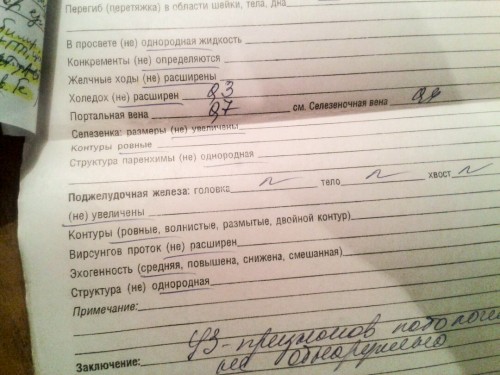 Перегиб (перетяжка) в области шейки, тела, дна
В просвете (не) однородная жидкость
Конкременты (не) определяются
Желчные ходы (не) расширены
Холедох (не) расширен 0,3
Портальная вена 0,7 см. Селезеночная вена
Селезенка: размеры (не) увеличены
Контуры ровные
Структура паренхимы (не) однородная
Поджелудочная железа: головка N тело N хвост N
(не) увеличены
Контуры (ровные, волнистые, размытые, двойной контур)
Вирсунгов проток (не) расширен
Эхогенность (средняя, повышена, снижена, смешанная)
Структура (не) однородная
Примечание:
УЗ-признаков
Заключение: не обнаружено